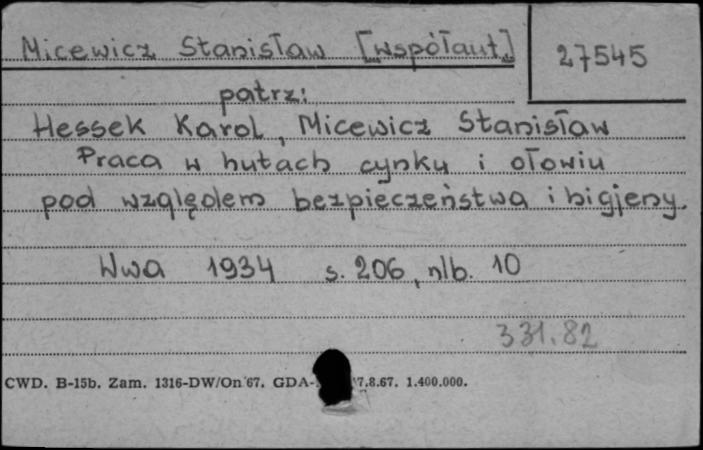 Micewicz Stanisław [współaut.]
27545
patrz:
Hessek Karol, Micewicz Stanisław
Praca w hutach cynku i ołowiu
pod względem bezpieczeństwa i higjeny.
Wwa 1934 s. 206, nlb. 10
331.82
CWD. B-15b. Zam. 1316-DW/On 67. GDA- 7.8.67. 1.400.000.